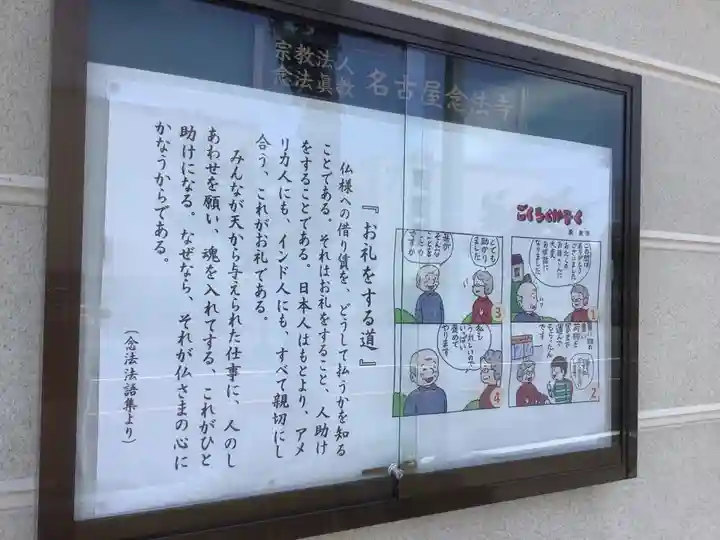 宗教法人
念法眞教
名古屋念法寺
『お礼をする道』
仏様への借り賃を、どうして払うかを知る
ことである。それはお礼をすること、人助け
をすることである。日本人はもとより、アメ
リカ人にも、インド人にも、すべて親切にし
合う、これがお礼である。
みんなが天から与えられた仕事に、人のし
あわせを願い、魂を入れてする、これがひと
助けになる。なぜなら、それが仏さまの心に
かなうからである。
（念法法語集より）
1
2
とても
助かり
ました
3
私も
うれしいので
いっぱい
褒めて
やります
4